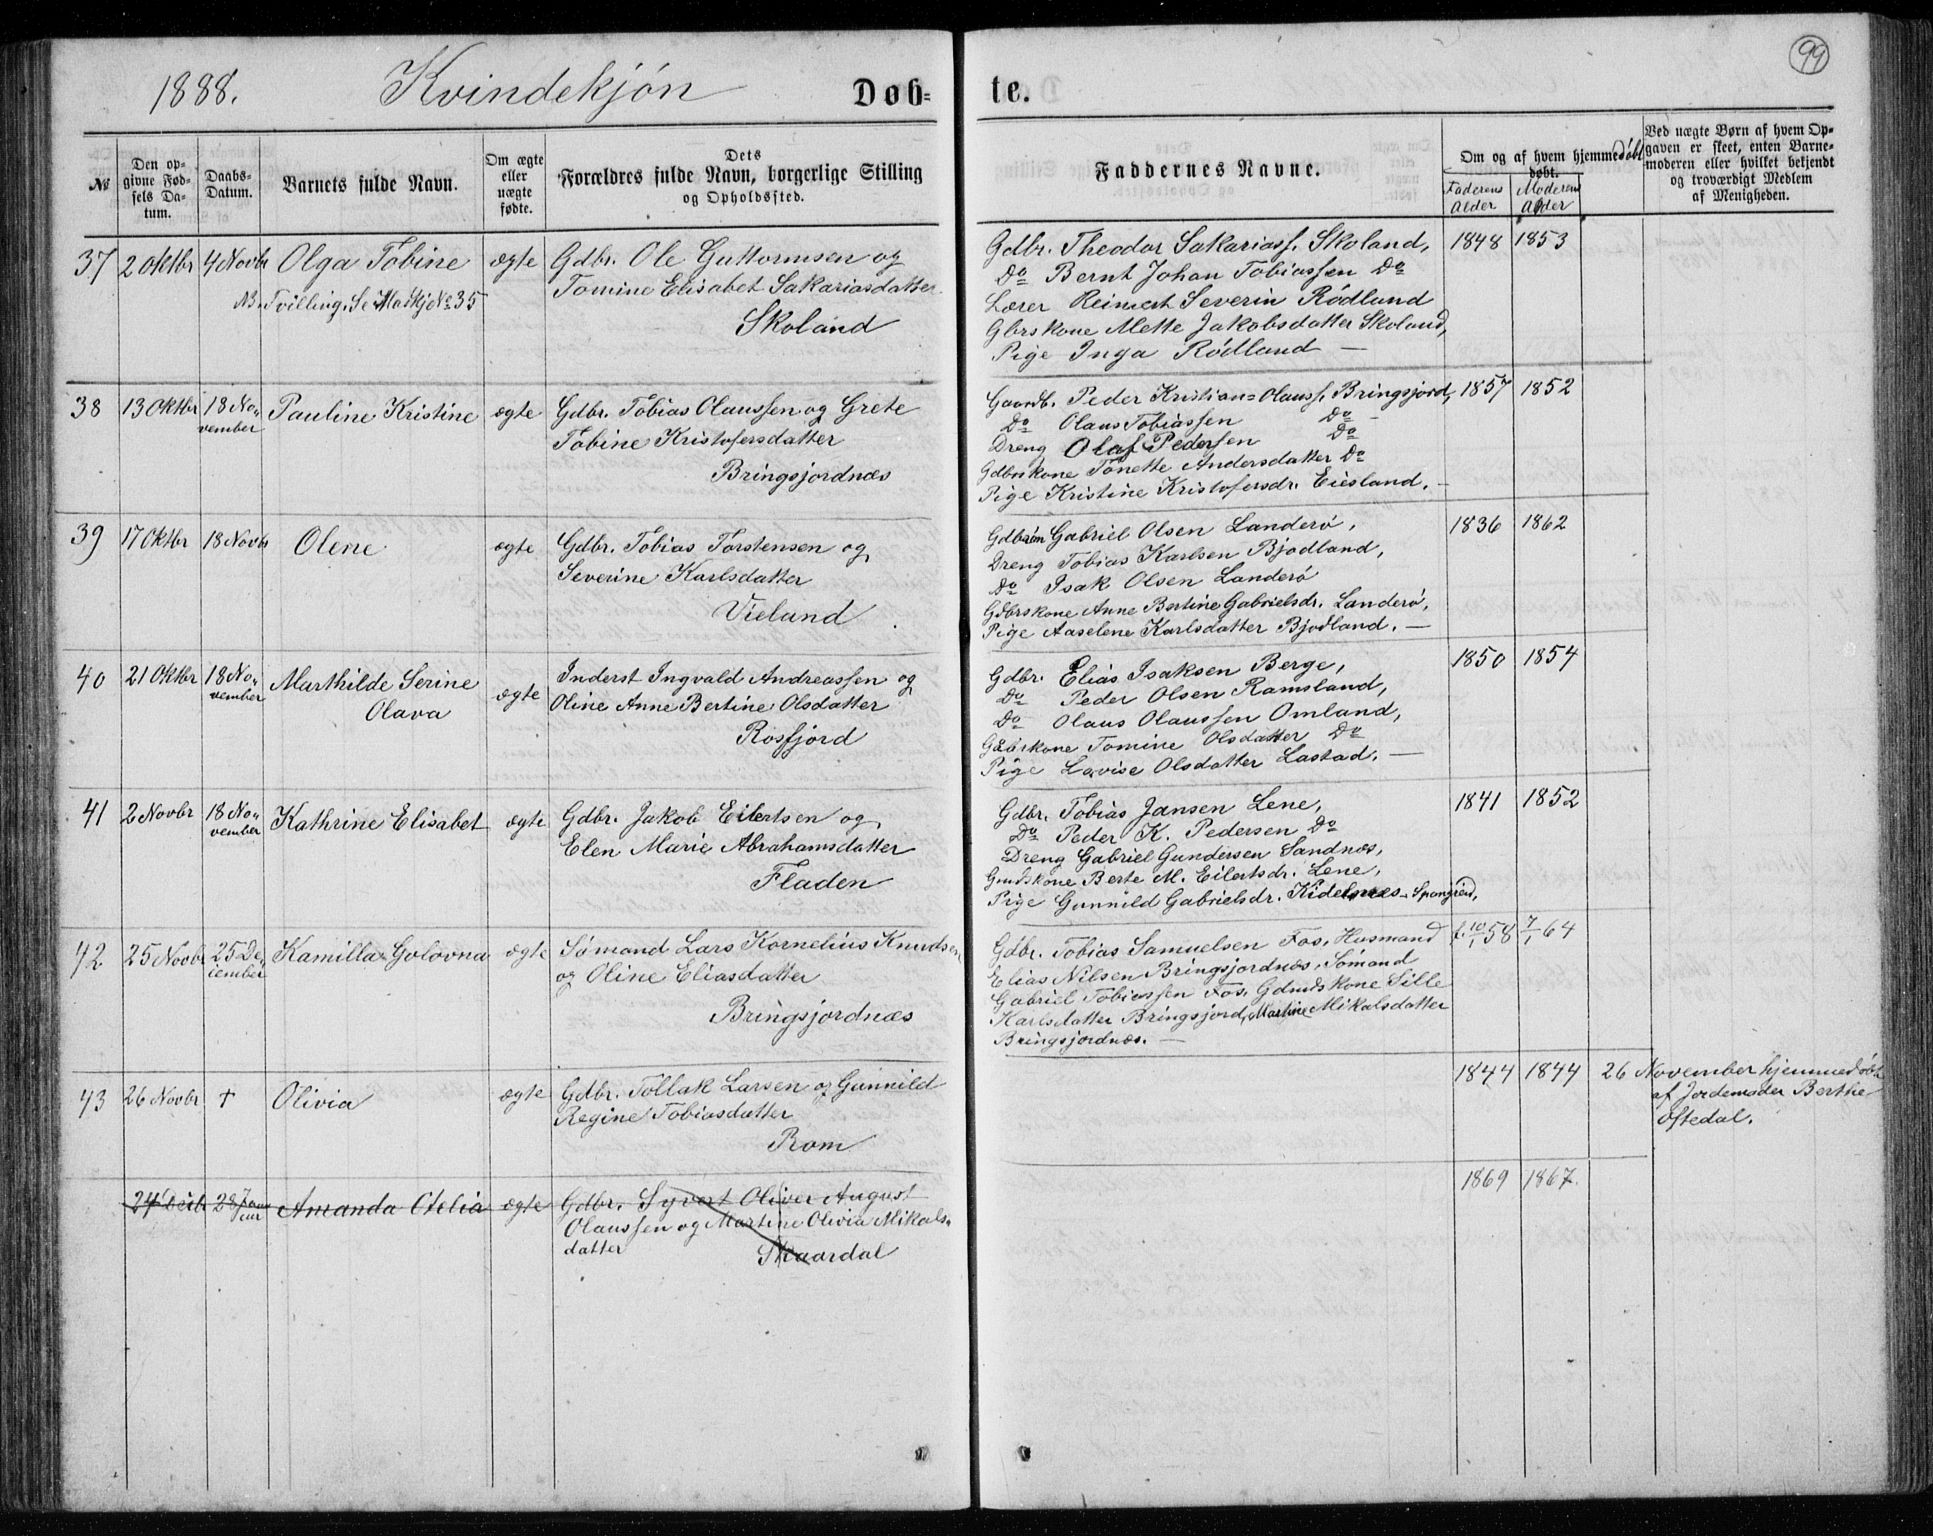 99
1888. Kvindekjøn Døb=te.
№
Den op-
givne Fød-
sels Da-
tum.
Daabs-
Datum.
Barnets fulde Navn.
Om ægte
eller
uægte
fødte.
Dets
Forældres fulde Navn, borgerlige Stilling
og Opholdssted.
Faddernes Navne.
Om og af hvem hjemmedøbt
døbt.
Faderens
Alder
Moderens
Alder
Ved uægte Børn af hvem Op-
gaven er skeet, enten Barne-
moderen eller hvilket bekjendt
og troværdigt Medlem
af Menigheden.
37 2 Oktbr 4 Novbr Olga Tobine ægte
NB. Tvilling, Se Mandkj № 35
Gdbr. Ole Guttormsen og
Tomine Elisabet Sakariasdatter
Skoland
Gdbr. Theodor Sakariass. Skoland,
Do Bernt Johan Tobiassen Do
Lærer Reinert Severin Rødland
Gbrskone Mette Jakobsdatter Skoland,
Pige Inga Rødland —
1848 1853
38 13 Oktbr 18 No-
vember
Pauline Kristine ægte
Gdbr. Tobias Olaussen og Grete
Tobine Kristofersdatter
Bringsjordnæs
Gaardb. Peder Kristian=Olauss. Bringsjord,
Do Olaus Tobiassen Do
Dreng Olaf Pedersen Do
Gdbrskone Tonette Andersdatter Do
Pige Kristine Kristofersdr. Eiesland. —
1857 1852
39 17 Oktbr 18 Novbr Olene ægte
Gdbr. Tobias Torstensen og
Severine Karlsdatter
Vieland
Gdbrsøn Gabriel Olsen Landerø,
Dreng Tobias Karlsen Bjodland,
Do Isak Olsen Landerø
Gdbrskone Anne Bertine Gabrielsdr. Landerø,
Pige Aaselene Karlsdatter Bjodland. —
1836 1862
40 21 Oktbr 18 No-
vember
Marthilde Serine
Olava
ægte
Inderst Ingvald Andreassen og
Oline Anne Bertine Olsdatter
Rosfjord
Gdbr. Elias Isaksen Berge,
Do Peder Olsen Ramsland,
Do Olaus Olaussen Omland,
Gdbrskone Tomine Olsdatter Do
Pige Lovise Olsdatter Lastad. —
1850 1854
41 2 Novbr 18 No-
vember
Kathrine Elisabet ægte
Gdbr. Jakob Eilertsen og
Elen Marie Abrahamsdatter
Fladen
Gdbr. Tobias Jansen Lene,
Do Peder K. Pedersen Do
Dreng Gabriel Gundersen Sandnæs,
Gmdskone Berte M. Eilertsdr. Lene,
Pige Gunnild Gabrielsdr. Kidelnæs - Spangreid,
1841 1852
42 25 Novbr 25 De-
cember
Kamilla Golovna ægte
Sømand Lars Kornelius Knudsen
og Oline Eliasdatter
Bringsjordnæs
Gdbr. Tobias Samuelsen Fos, Husmand
Elias Nilsen Bringsjordnæs, Sømand
Gabriel Tobiassen Fos, Gdmdskone Sille
Karlsdatter Bringsjord, Martine Mikalsdatter
Bringsjordnæs. —
f. 10/1 58 7/1 64
43 26 Novbr † Olivia ægte
Gdbr. Tollak Larsen og Gunnild
Regine Tobiasdatter
Rom
1844 1844
26 November hjemmedøbt
af Jordemoder Berthe
Oftedal.
24 Decbr 28 Janu
uar
Amanda Otelia ægte
Gdbr. Syvert Oliver August
Olaussen og Martine Olivia Mikals-
datter
Skaardal
1869 1867.